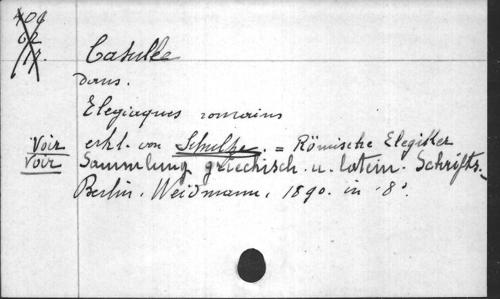 409
62
17.
Catulle
dans.
Elegiaques romains
Voir erkl. von Schulze. = Römische Elegiker
Voir Sammlung griechisch. u. latein. Schrifts.
Berlin. Weidmann, 1890. in 8°